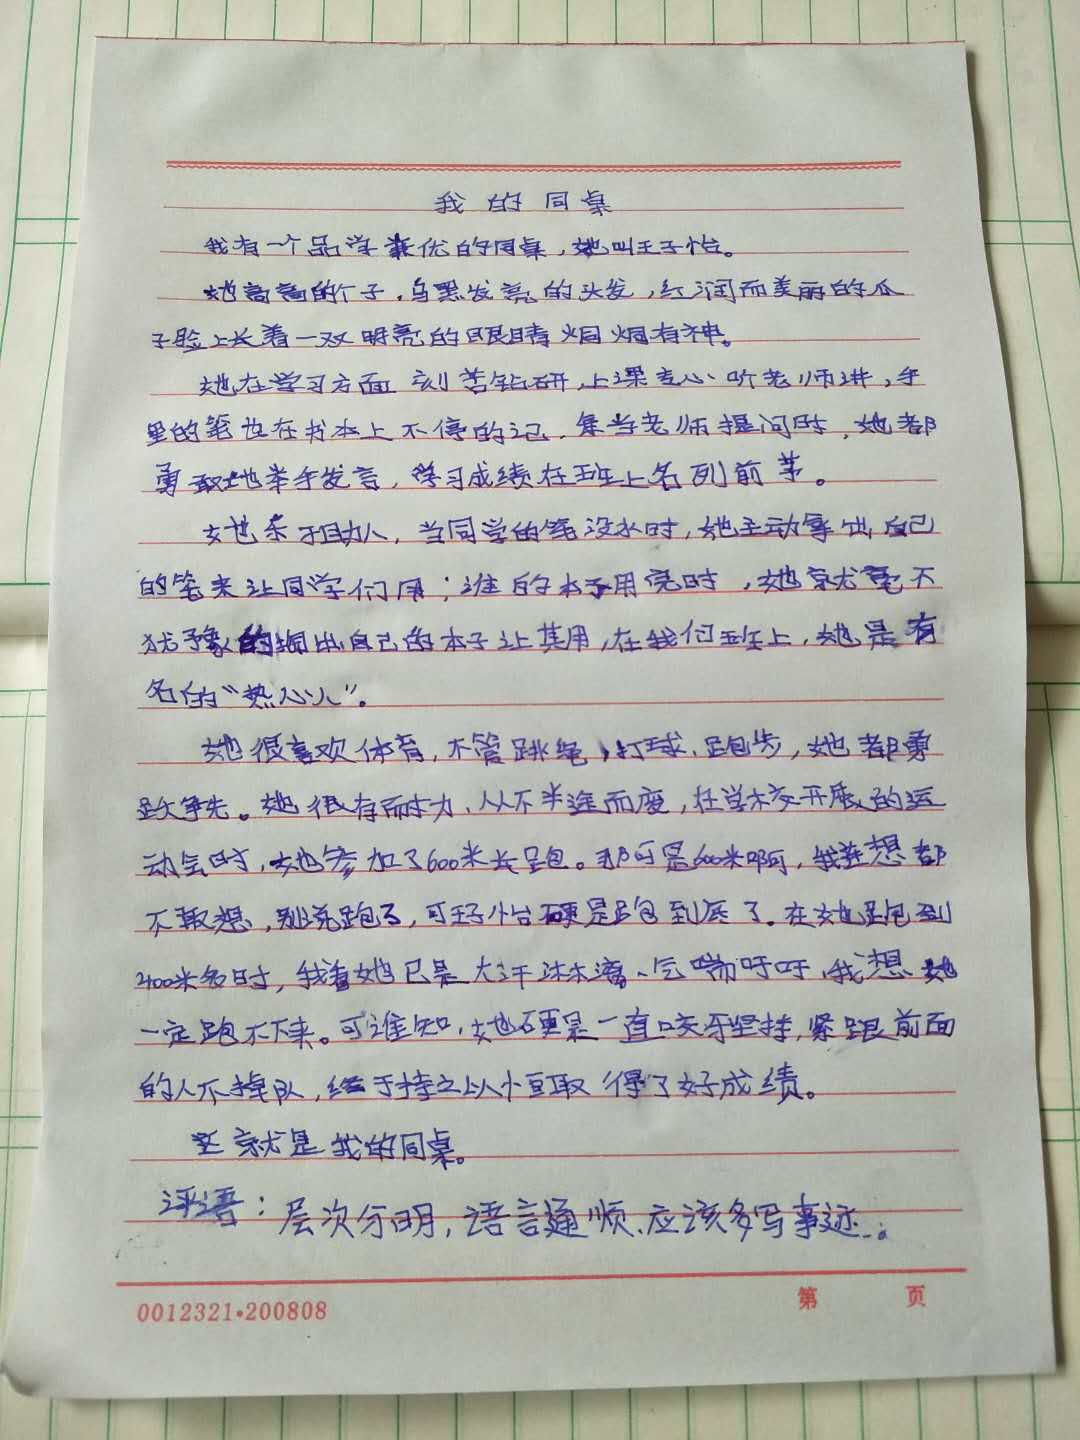 我的同桌
我有一个品学兼优的同桌，她叫王子怡。
她高高的个子，乌黑发亮的头发，红润而美丽的瓜
子脸上长着一双明亮的眼睛炯炯有神。
她在学习方面刻苦钻研，上课专心听老师讲，手
里的笔也在书本上不停的记，每当老师提问时，她都
勇敢地举手发言，学习成绩在班上名列前茅。
她乐于助人，当同学的笔没水时，她主动拿出自己
的笔来让同学们用；谁的本子用完时，她就毫不
犹豫的掏出自己的本子让其用，在我们班上，她是有
名的“热心人”。
她很喜欢体育，不管跳绳，打球，跑步，她都勇
跃争先。她很有耐力，从不半途而废，在学校开展的运
动会时，她参加了600米长跑。那可是600米啊，我连想都
不敢想，别说跑了，可王子怡硬是跑到底了。在她跑到
400米多时，我看她已是大汗沐漓、气喘吁吁，我想她
一定跑不下来。可谁知，她硬是一直咬牙坚持，紧跟前面
的人不掉队，终于持之以恒取得了好成绩。
这就是我的同桌。
评语：层次分明，语言通顺，应该多写事迹。
0012321·200808
第 页